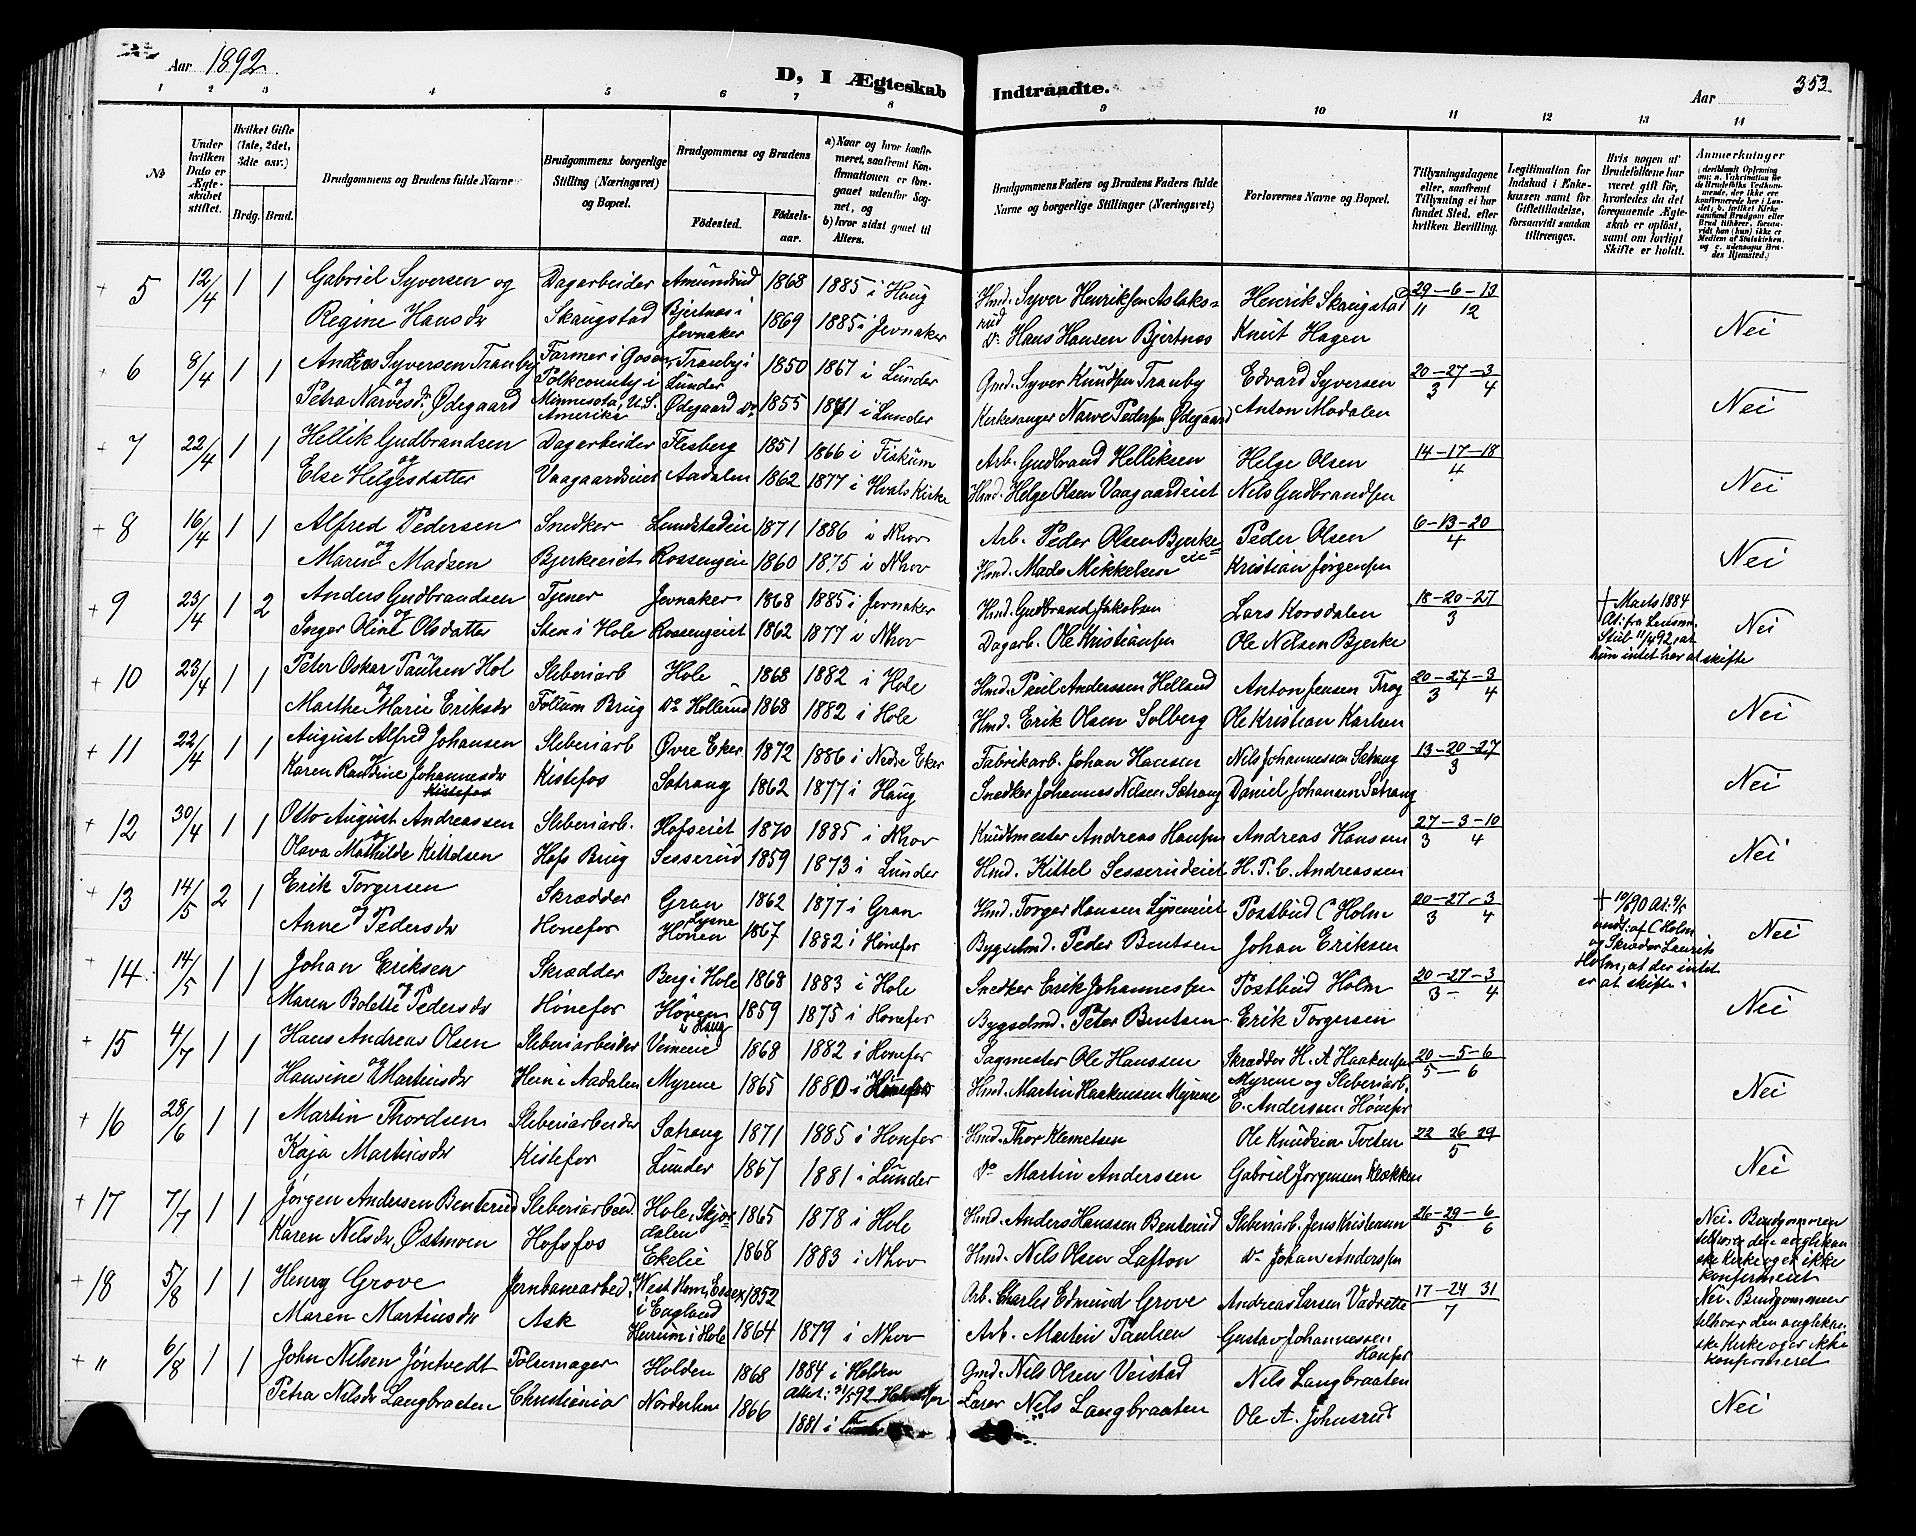 Aar 1892
D, I Ægteskab Indtraadte.
Aar 353
1 2 3 4 5 6 7 8 9 10 11 12 13 14
No
Under hvilken Dato er Ægteskabet stiftet.
Hvilket Gifte (1ste, 2det, 3die osv.)
Brdg. Brud.
Brudgommens og Brudens fulde Navne
Brudgommens borgerlige Stilling (Næringsvei) og Bopæl.
Brudgommens og Brudens
Fødested. Fødselsaar.
a) Naar og hvor konfirmeret, saafremt Konfirmationen er foregaaet udenfor Sognet, og
b) hvor sidst gaaet til Alters.
Brudgommens Faders og Brudens Faders fulde Navne og borgerlige Stillinger (Næringsvei)
Forlovernes Navne og Bopæl.
Tillysningsdagene eller, saafremt Tillysning ei har fundet Sted, efter hvilken Bevilling.
Legitimation for Indskud i Enkekassen samt for Giftetilladelse, forsaavidt saadan tiltrænges.
Hvis nogen af Brudefolkene har været gift før, hvorledes da det foregaaende Ægteskab er opløst, samt om lovligt Skifte er holdt.
Anmærkninger
+ 5 12/4 1 1 Gabriel Syversen og Dagarbeider Amundrud 1868 1885 i Haug Hmd. Syver Henriksen Aslaksrud Henrik Skaugstad 29-6-13
Regine Hansdr Skaugstad Bjertnæs i Jevnaker 1869 1885 i Jevnaker Do Hans Hansen Bjertnæs Knut Hagen 11 12 Nei
+ 6 8/4 1 1 Anders Syversen Tranby Farmer i Tranby i Lunder 1850 1867 i Lunder Gmd. Syver Knudsen Tranby Edvard Syversen 20-27-3
og Petra Narvesdr. Ødegaard Polkcounty i Minnesota, U.S. Amerika Ødegaard do 1855 1871 i Lunder Kirkesanger Narve Pedersen Ødegaard Anton Modalen 3 4 Nei
+ 7 22/4 1 1 Hellik Gudbrandsen Dagarbeider Flesberg 1851 1866 i Fiskum Arb. Gudbrand Helliksen Helge Olsen 14-17-18
og Else Helgesdatter Vaagaardseiet Aadalen 1862 1877 i Hvals Kirke Hmd. Helge Olsen Vaagaardeiet Nils Gudbrandsen 4 Nei
+ 8 16/4 1 1 Alfred Pedersen Snedker Lundstadeie 1871 1886 i Nhov Arb. Peder Olsen Bjerkeeie Peder Olsen 6-13-20
og Maren Madsen Bjerkeeiet Rossengeie 1860 1875 i Nhov Hmd. Mads Mikkelsen Kristian Jørgensen 4 Nei
+ 9 23/4 1 2 Anders Gudbrandsen Tjener Jevnaker 1868 1885 i Jevnaker Hmd. Gudbrand Jakobsen Lars Korsdalen 18-20-27 † Marts 1884
og Inger Oline Olsdatter Sten i Hole Rossengeiet 1862 1877 i Nhov Dagarb. Ole Kristiansen Ole Nilsen Bjerke 3 At: fra Lensm. Stub 11/4 92, at hun intet har at skifte Nei
+ 10 23/4 1 1 Peter Oskar Paulsen Hol Sliberiarb Hole 1868 1882 i Hole Hmd. Paul Anderssen Helland Anton Jensen Trøg 20-27-3
og Marthe Marie Eriksdr Follum Brug Do Hollerud 1868 1882 i Hole Hmd. Erik Olsen Solberg Ole Kristian Karlsen 3 4 Nei
+ 11 22/4 1 1 August Alfred Johansen Sliberiarb Øvre Eker 1872 1886 i Nedre Eker Fabrikarb. Johan Hansen Nils Johannessen Sætrang 13-20-27
og Karen Randine Johannesdr Kistefos Kistefos Sætrang 1862 1877 i Haug Snedker Johannes Nilsen Sætrang Daniel Johansen Sætrang 3 Nei
+ 12 30/4 1 1 Otto August Andreassen Sliberiarb. Hofseiet 1870 1885 i Nhov Kunstmester Andreas Hansen Andreas Hanssen 27-3-10
og Olava Mathilde Kittelsen Hofs Brug Sesserud 1859 1873 i Lunder Hmd. Kittel Sesserudeiet H. P. C. Andreassen 3 4 Nei
+ 13 14/5 2 1 Erik Torgersen Skrædder Gran 1862 1877 i Gran Hmd. Torger Hansen Lyseneiet Postbud C Holm 20-27-3 † 10/6 90 At: 9/5
og Anne Pedersdr Hønefos Lysne Hønen 1867 1882 i Hønefos Bygselmd. Peder Bentsen Johan Eriksen 3 4 undt: af C Holm og Skræder Laurik Holm, at der intet er at skifte. Nei
+ 14 14/5 1 1 Johan Eriksen Skrædder Berg i Hole 1868 1883 i Hole Snedker Erik Johannessen Postbud Holm 20-27-3
og Maren Bolette Pedersdr Hønefos Hønen i Haug 1859 1875 i Hønefos Bygselmd. Peter Bentsen Erik Torgersen 3- 4 Nei
+ 15 4/7 1 1 Hans Andreas Olsen Sliberiarbeider Vemeeie 1868 1882 i Hønefos Sagmester Ole Hanssen Skrædder H. A Haakensen 20-5-6
og Hansine Martinsdr Hen i Aadalen Myrene 1865 1880 i Hønefos Hmd. Martin Haakensen Myrene Myrene og Sliberiarb. E. Anderssen Hønefos 5-6 Nei
+ 16 28/6 1 1 Martin Thordsen Sliberiarbeider Sætrang 1871 1885 i Hønefos Hmd. Thor Klemetsen Ole Knudsen Tveten 22 26 29
Kaja Martinsdr Kistefos Lunder 1867 1881 i Lunder Do Martin Anderssen Gabriel Jørgensen Klækken 5 Nei
+ 17 7/7 1 1 Jørgen Andersen Benterud Sliberiarbeid. Hole, Skjørdalen 1865 1878 i Hole Hmd. Anders Hanssen Benterud Sliberiarb. Jens Kristensen 26-29-6
Karen Nilsdr Østmoen Hofsfos Ekelie 1868 1883 i Nhov Hmd. Nils Olsen Løfton do Johan Anderssen 5 6 Nei - Brudgommen tilhører den anglikanske Kirke og er ikke konfirmeret
+ 18 5/8 1 1 Henry Grove Jernbanearbeid. West Ham, Essex i England 1852 Arb. Charles Edmund Grove Andreas Larsen Vadrette 17-24 31
Maren Martinsdr Ask Herrum i Hole 1864 1879 i Nhov Arb. Martin Paulsen Gustav Johannessen Hønefos 7 Nei - Brudgommen tilhører den anglikanske Kirke og er ikke konfirmeret
+ " 6/8 1 1 John Nilsen Jøntvedt Pølsemager Holden 1868 1884 i Holden Gmd. Nils Olsen Veistad Nils Langbraaten
Petra Nilsdr Langbraaten Christiania Norderhov 1866 1881 i Lærer Nils Langbraaten Ole A. Johnsrud Nei